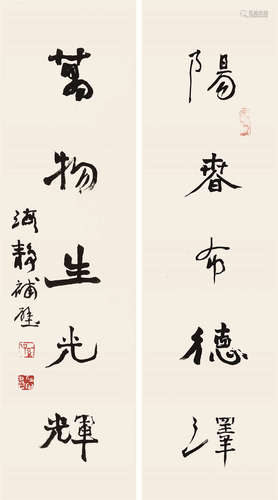 陽春布德澤
萬物生光輝
海静補壁